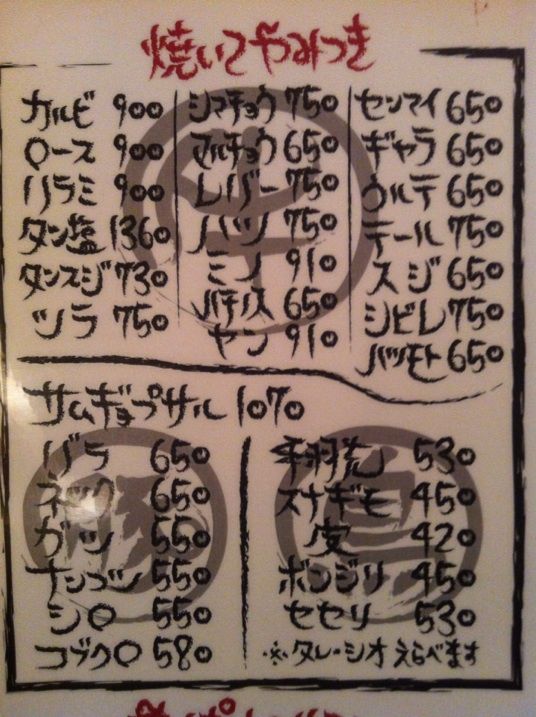 焼いてやみつき
カルビ 900
ロース 900
ハラミ 900
タン塩 1360
タンスジ 730
ツラ 750
シマチョウ 750
マルチョウ 650
レバー 750
ハツ 750
ミノ 910
ハチノス 650
ヤン 910
センマイ 650
ギャラ 650
ウルテ 650
テール 750
スジ 650
シビレ 750
ハツモト 650
牛
サムギョプサル 1070
バラ 650
ネック 650
ガツ 550
ナンコツ 550
シロ 550
コブクロ 580
豚
手羽先 530
スナギモ 450
皮 420
ボンジリ 450
セセリ 530
※タレ・シオえらべます
鳥